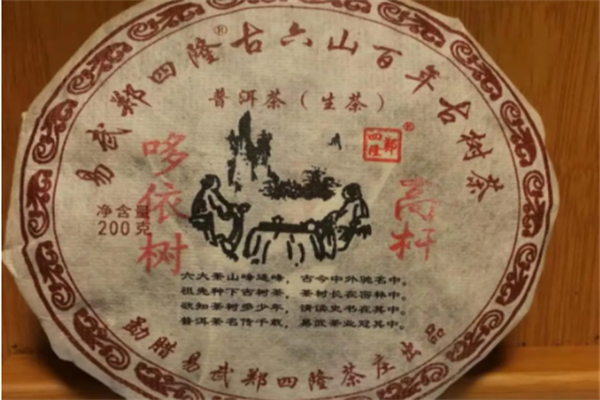 易武郑四隆®古六山百年古树茶
普洱茶（生茶）
郑四隆®
哆依树
高杆
净含量
200克
六大茶山峰连峰，古今中外驰名中。
祖先种下古树茶，茶树长在密林中。
欲知茶树多少年，请读史书在其中。
普洱茶名传千载，易武茶业冠其中。
勐腊易武郑四隆茶庄出品